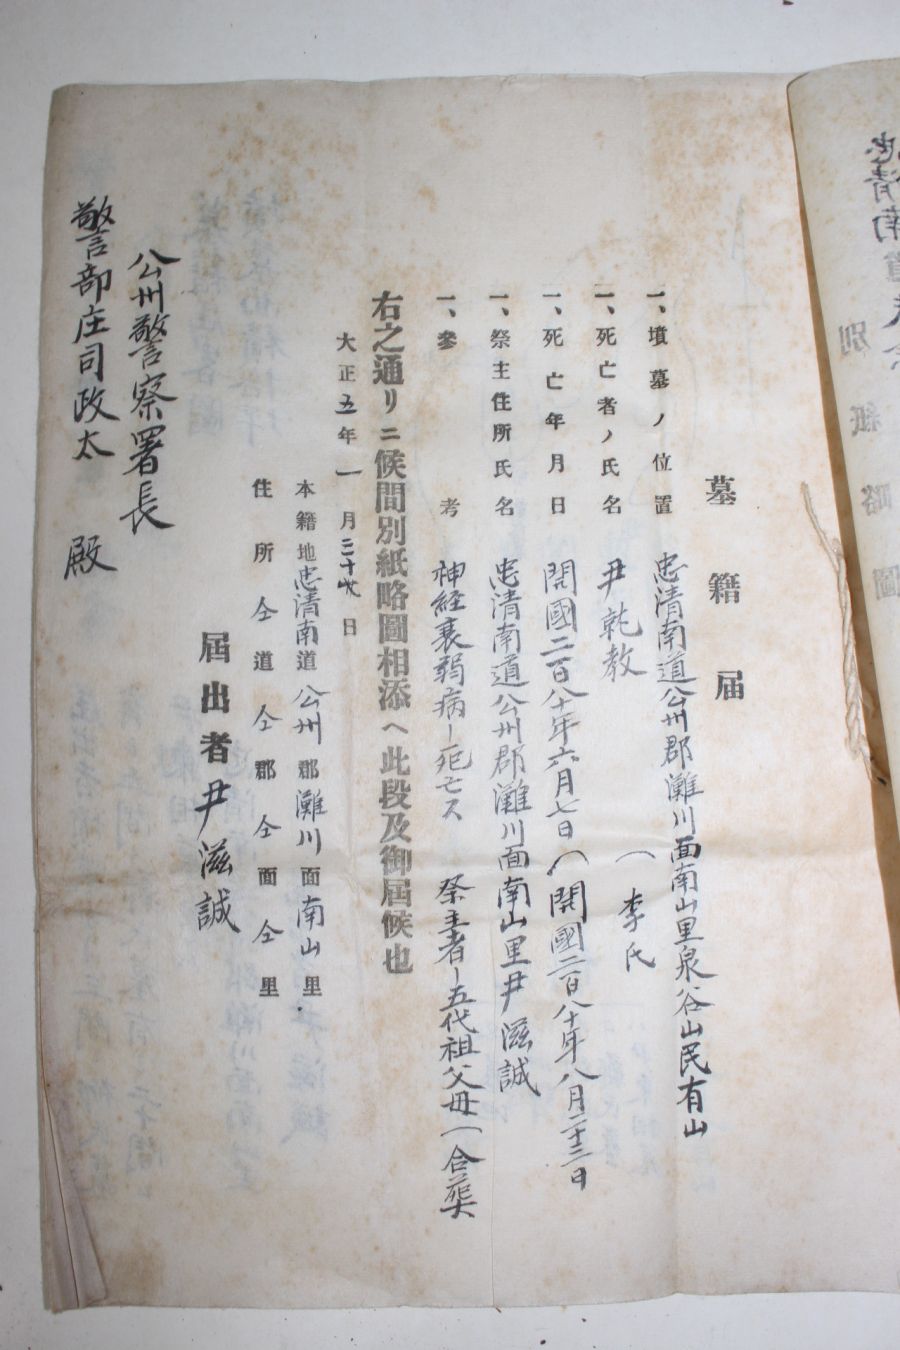 墓籍届
一、墳墓ノ位置 忠清南道公州郡灘川面南山里泉谷山民有山
一、死亡者ノ氏名 尹乾教 （李氏
一、死亡年月日 開國二百八十年六月七日（開國二百八十年八月二十三日
一、祭主住所氏名 忠清南道公州郡灘川面南山里尹滋誠
一、参考 神経衰弱病ニ死亡ス 祭主者ニ五代祖父母（合葬
右之通リニ候間別紙略圖相添ヘ此段及御届候也
大正五年一月二十 日
本籍地忠清南道公州郡灘川面南山里
住所仝道仝郡仝面仝里
届出者尹滋誠
公州警察署長
警部庄司政太 殿
別紙略圖
忠清南道